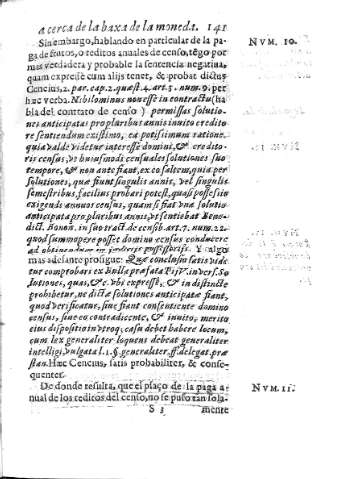 acerca de la baxa de la moneda. 141
Sin embargo, hablando en particular de la pa-
ga de frutos, o reditos anuales de censo, tẽgo por
mas verdadera y probable la sentencia negatiua,
quam expresse cum alijs tenet, & probat dictus
Cencius, 2. par. cap. 2. quæst. 4. art. 5. num. 9. per
hæc verba. Nihilominus non esse in contractu (ha
bla del contrato de censo) permissas solutio-
nes anticipatas pro pluribus annis inuito credito
re sentiendum existimo, ea potissimum ratione,
quia valde videtur interesse domini, & credito-
ris census, vt huiusmodi censuales solutiones suo
tempore, & non ante fiant, ex eo saltem, quia per
solutiones, quæ fiunt singulis annis, vel singulis
semestribus, facilius probari potest, quasi possessio
exigendi annuos census, quam si fiat vna solutio
anticipata pro pluribus annis, vt sentiebat Bene-
dict. Bonon. in suo tract. de censib. art. 7. num. 22.
quod summopere posset domino census conducere
ad obtinendum in possessorijs. Y algo
mas adelante prosigue: Quæ conclusio satis vide
tur comprobari ex Bulla præfata Pij V. in vers. So
lutiones, quas, &c. vbi expresse, & in distincte
prohibetur, ne dictæ solutiones anticipatæ fiant,
quod verificatur, siue fiant consentiente domino
census, siue eo contradicente, & inuito; merito
eius dispositio in vtroq; casu debet habere locum,
cum lex generaliter loquens debeat generaliter
intelligi, vulgata l. 1. §. generaliter. ff. de legat. præ
stan. Hæc Cencius, satis probabiliter, & conse-
quenter.
De donde resulta, que el plaço de la paga a-
nual de los reditos del censo, no se puso tan sola-
S 3 mente
NVM. 10.
NVM. 11.